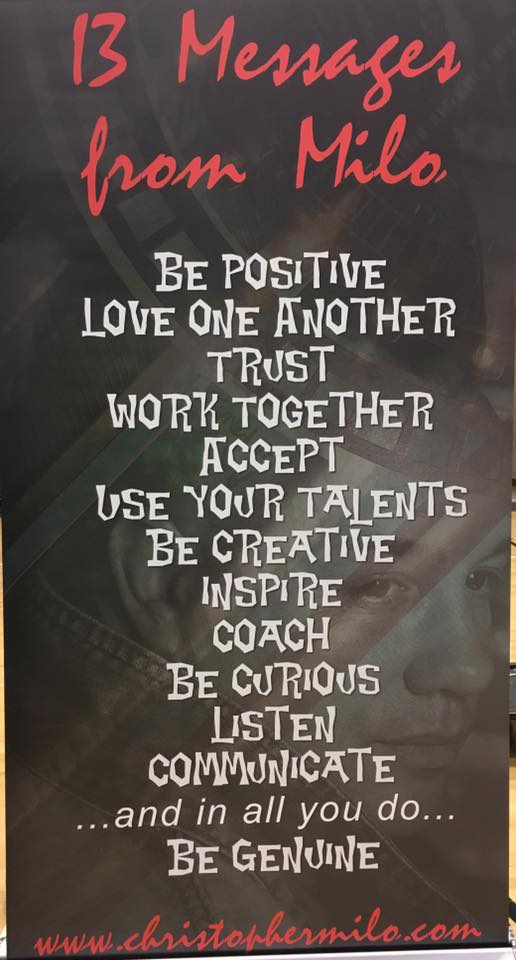 13 Messages
from Milo
BE POSITIVE
LOVE ONE ANOTHER
TRUST
WORK TOGETHER
ACCEPT
USE YOUR TALENTS
BE CREATIVE
INSPIRE
COACH
BE CURIOUS
LISTEN
COMMUNICATE
...and in all you do...
BE GENUINE
www.christophermilo.com